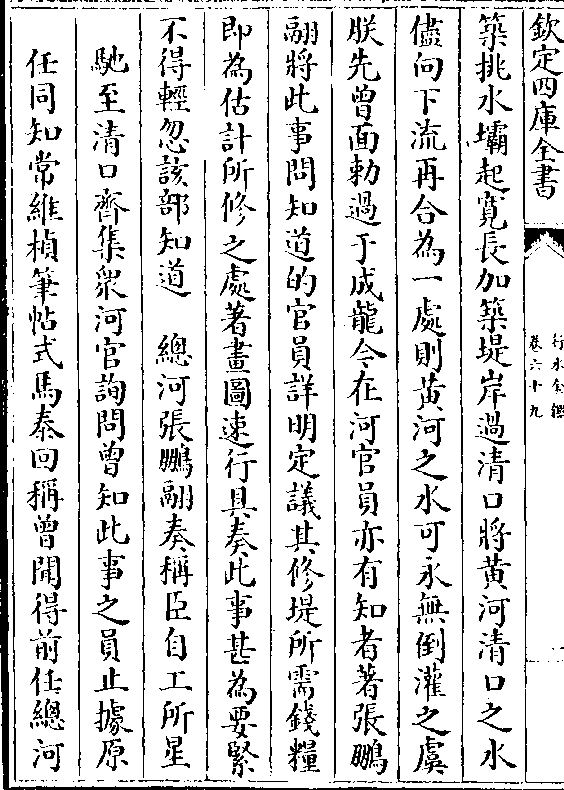 欽定四庫全書
行水金鑑
卷六十九
一
築挑水壩起寛長加築堤岸過清口將黄河清口之水
儘向下流再合為一處則黄河之水可永無倒灌之虞
朕先曾面勅過于成龍今在河官員亦有知者著張鵬
翮將此事問知道的官員詳明定議其修堤所需錢糧
即為估計所修之處著畫圖速行具奏此事甚為要緊
不得輕忽該部知道 總河張鵬翮奏稱臣自工所星
馳至清口齊集衆河官詢問曾知此事之員止據原
任同知常維楨筆帖式馬泰回稱曾聞得前任總河